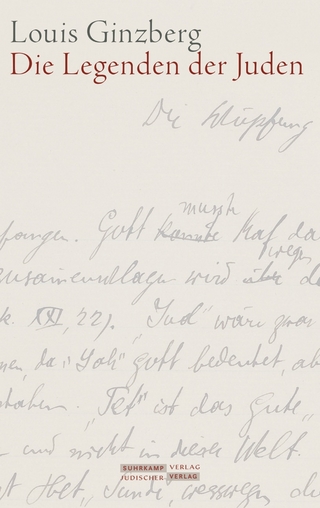 Louis Ginzberg
Die Legenden der Juden
Die Schöpfung
musste
fangen. Gott konnte Kaf da
wegen
zusammenschlagen wird über de
k. XXI, 22). „Jud" wäre zwar
men, da „Jah" Gott bedeutet, ab
staben. „Tet" ist das Gute,
und nicht in dieser Welt.
st Het, Sünde, weswegen die
SUHRKAMP VERLAG
JÜDISCHER VERLAG